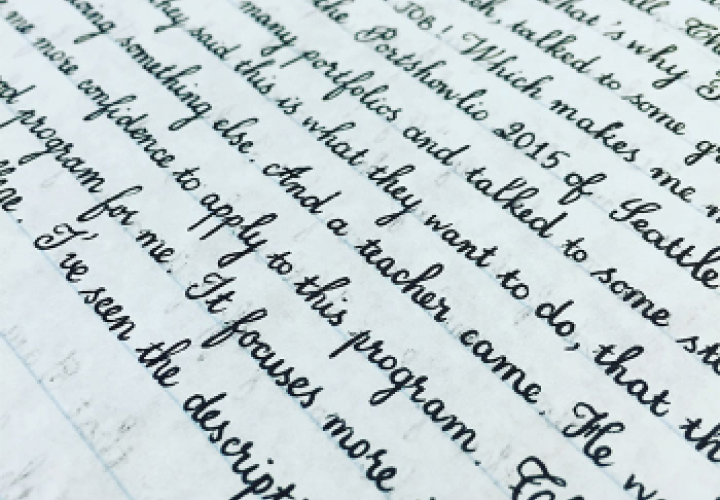 what's why I
talked to some
JOB! Which makes me
the Portshowlio 2015 of Seattle
many portfolios and talked to some
they said this is what they want to do, that
something else. And a teacher came. He
me more confidence to apply to this program.
program for me. It focuses more
I've seen the descript